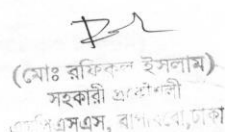 (মোঃ রফিকুল ইসলাম)
সহকারী প্রকৌশলী
এসএস, ঢাকা